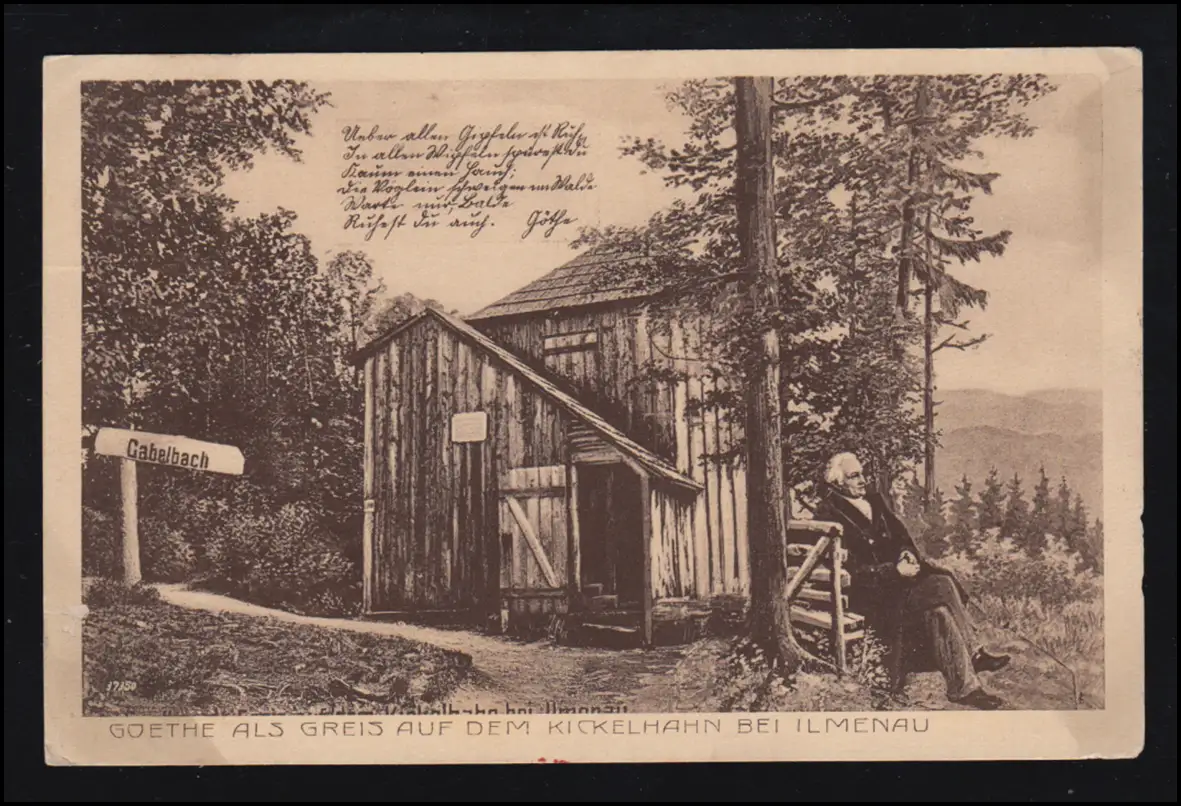 Ueber allen Gipfeln ist Ruh,
In allen Wipfeln spürest du
Kaum einen Hauch;
Die Vöglein schweigen im Walde
Warte nur, Balde
Ruhest du auch. Göthe
Gabelbach
17150
Kickelhahn bei Ilmenau
GOETHE ALS GREIS AUF DEM KICKELHAHN BEI ILMENAU